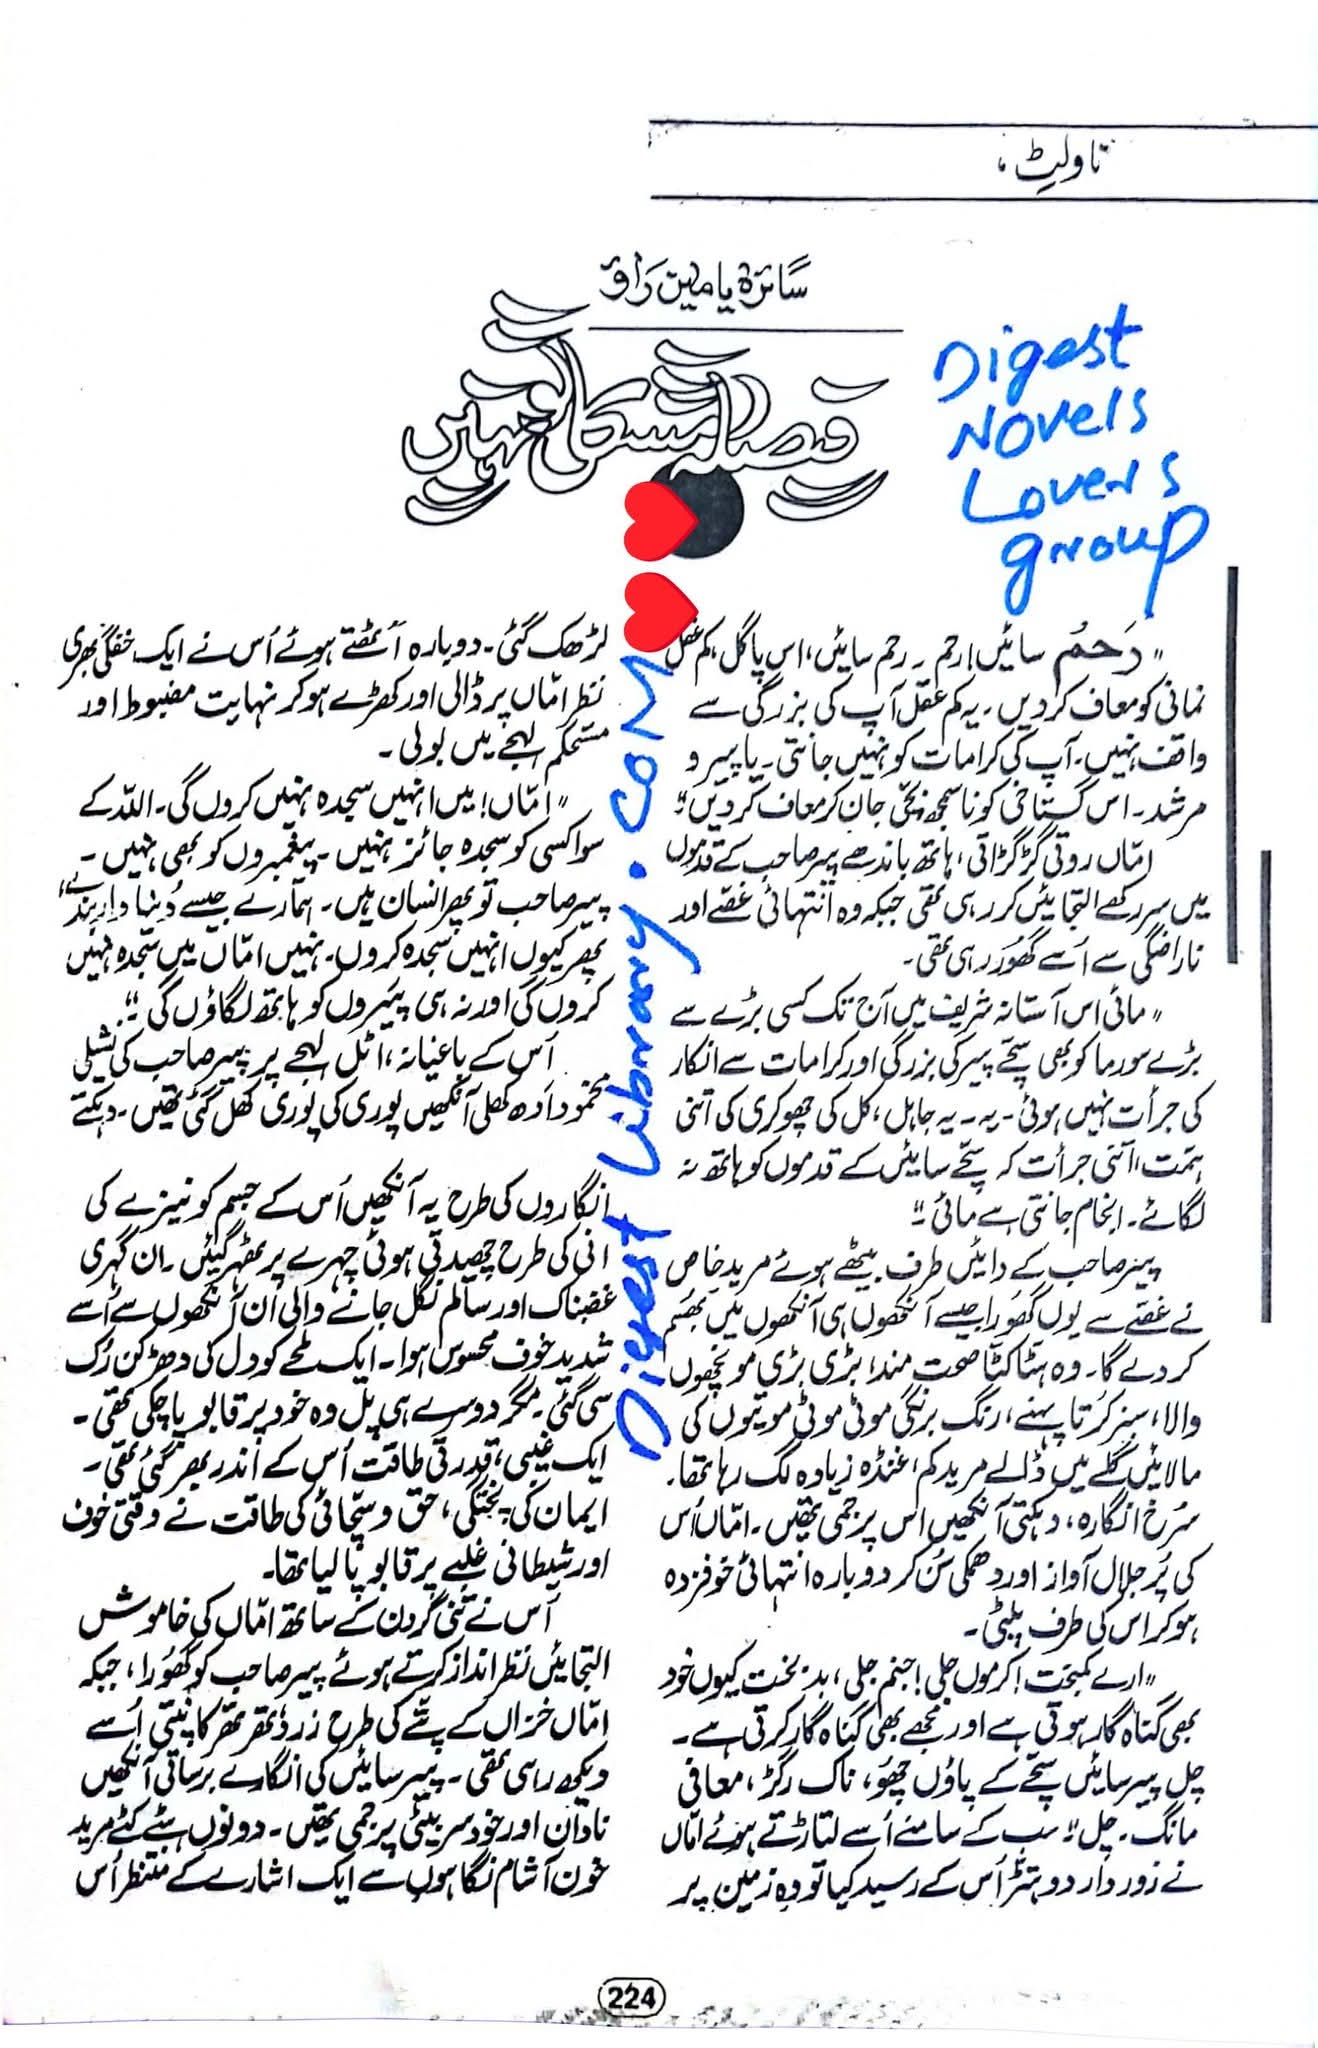 ناولٹ،
سائرہ یامین راؤ
فیصلہ مشکل تو نہیں
Digest
Novels
Lovers
group
Digest Library.com
"رَحم سائیں! رحم۔ رحم سائیں، اس پاگل، کم عقل
نمانی کو معاف کردیں۔ یہ کم عقل آپ کی بزرگی سے
واقف نہیں۔ آپ کی کرامات کو نہیں جانتی۔ یا پیر و
مرشد۔ اس گستاخی کو ناسمجھ بچّی جان کر معاف کردیں۔"
امّاں روتی گڑگڑاتی، ہاتھ باندھے پیر صاحب کے قدموں
میں سر رکھے التجائیں کر رہی تھی جبکہ وہ انتہائی غصّے اور
ناراضگی سے اُسے گھُور رہی تھی۔
"مائی اس آستانہ شریف میں آج تک کسی بڑے سے
بڑے سورما کو بھی سچّے پیر کی بزرگی اور کرامات سے انکار
کی جرأت نہیں ہوئی۔ یہ۔ یہ جاہل، کل کی چھوکری کی اتنی
ہمّت، اتنی جرأت کہ سچّے سائیں کے قدموں کو ہاتھ نہ
لگائے۔ انجام جانتی ہے مائی۔"
پیر صاحب کے دائیں طرف بیٹھے ہوئے مریدِ خاص
نے غصّے سے یوں گھُورا جیسے آنکھوں ہی آنکھوں میں بھسم
کر دے گا۔ وہ ہٹا کٹا صحت مند، بڑی بڑی مونچھوں
والا، سبز کُرتا پہنے، رنگ برنگی موٹی موٹی موتیوں کی
مالائیں گلے میں ڈالے مرید کم، غنڈہ زیادہ لگ رہا تھا۔
سُرخ انگارہ، دہکتی آنکھیں اس پر جمی تھیں۔ امّاں اُس
کی پُرجلال آواز اور دھمکی سُن کر دوبارہ انتہائی خوفزدہ
ہو کر اس کی طرف پلٹی۔
"ارے کمبخت! کرموں جلی! جنم جلی، بدبخت کیوں خود
بھی گناہ گار ہوتی ہے اور مجھے بھی گناہ گار کرتی ہے۔
چل پیر سائیں سچّے کے پاؤں چھُو، ناک رگڑ، معافی
مانگ۔ چل۔" سب کے سامنے اُسے لتاڑتے ہوئے امّاں
نے زوردار دو ہتڑ اُس کے رسید کیا تو وہ زمین پر
لڑھک گئی۔ دوبارہ اُٹھتے ہوئے اُس نے ایک خفگی بھری
نظر امّاں پر ڈالی اور کھڑے ہو کر نہایت مضبوط اور
مستحکم لہجے میں بولی۔
"امّاں! میں انہیں سجدہ نہیں کروں گی۔ اللہ کے
سوا کسی کو سجدہ جائز نہیں۔ پیغمبروں کو بھی نہیں۔
پیر صاحب تو پھر انسان ہیں۔ ہمارے جیسے دُنیا دار بندے،
پھر کیوں انہیں سجدہ کروں۔ نہیں امّاں میں سجدہ نہیں
کروں گی اور نہ ہی پیروں کو ہاتھ لگاؤں گی۔"
اُس کے باغیانہ، اٹل لہجے پر پیر صاحب کی نشیلی
مخمور اَدھ کھلی آنکھیں پوری کی پوری کھل گئی تھیں۔ دہکتے
انگاروں کی طرح یہ آنکھیں اُس کے جسم کو نیزے کی
انی کی طرح چھیدتی ہوئی چہرے پر ٹھہر گئیں۔ ان گہری
غضبناک اور سالم نگل جانے والی ان آنکھوں سے اُسے
شدید خوف محسوس ہوا۔ ایک لمحے کو دل کی دھڑکن رُک
سی گئی۔ مگر دوسرے ہی پل وہ خود پر قابو پا چکی تھی۔
ایک غیبی، قدرتی طاقت اُس کے اندر بھر گئی تھی۔
ایمان کی پختگی، حق و سچّائی کی طاقت نے وقتی خوف
اور شیطانی غلبے پر قابو پا لیا تھا۔
اُس نے تنی گردن کے ساتھ امّاں کی خاموش
التجائیں نظر انداز کرتے ہوئے پیر صاحب کو گھُورا، جبکہ
امّاں خزاں کے پتّے کی طرح زرد، تھر تھر کانپتی اُسے
دیکھ رہی تھی۔ پیر سائیں کی انگارے برساتی آنکھیں
نادان اور خود سر بیٹی پر جمی تھیں۔ دونوں ہٹے کٹے مرید
خون آشام نگاہوں سے ایک اشارے کے منتظر اُس
224